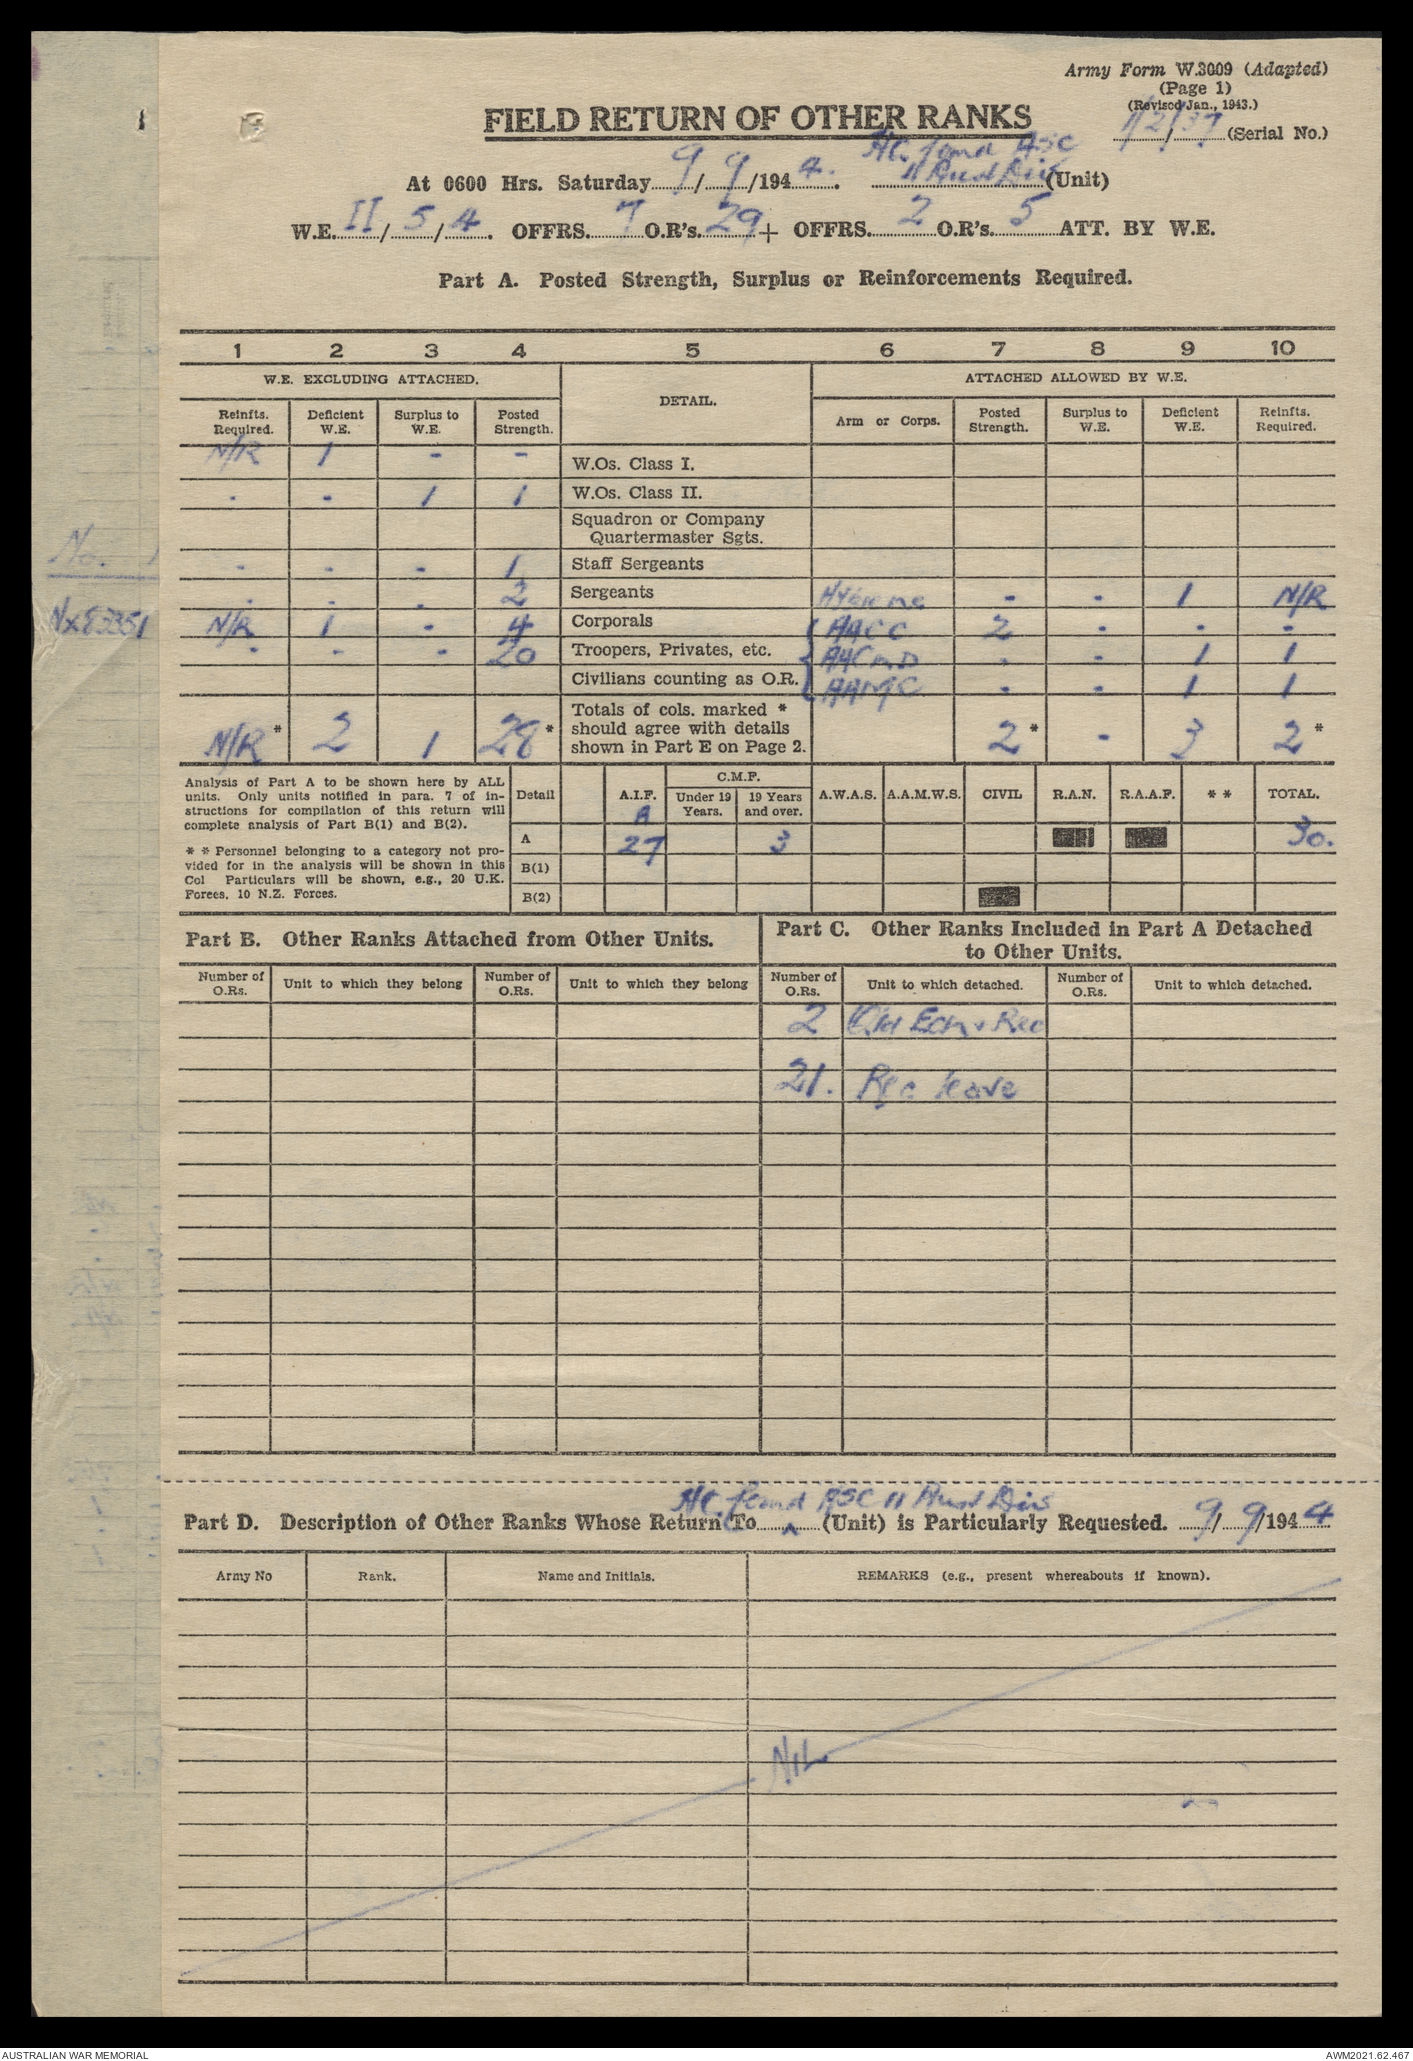 Army Form W.3009 (Adapted)
(Page 1)
(Revised Jan., 1943.)
1/2/37 (Serial No.)
FIELD RETURN OF OTHER RANKS
HQ. Comd ASC
At 0600 Hrs. Saturday 9/9/1944. 11 Aust Div (Unit)
W.E. II/5/4. OFFRS. 7 O.R's. 29 + OFFRS. 2 O.R's. 5 ATT. BY W.E.
Part A. Posted Strength, Surplus or Reinforcements Required.
1 2 3 4 5 6 7 8 9 10
W.E. EXCLUDING ATTACHED. DETAIL. ATTACHED ALLOWED BY W.E.
Reinfts. Required. Deficient W.E. Surplus to W.E. Posted Strength. Arm or Corps. Posted Strength. Surplus to W.E. Deficient W.E. Reinfts. Required.
N/R 1 - - W.Os. Class I.
- - 1 1 W.Os. Class II.
Squadron or Company
Quartermaster Sgts.
- - - 1 Staff Sergeants
- - - 2 Sergeants Hygiene - - 1 N/R
N/R 1 - 4 Corporals AACC 2 - - -
- - - 20 Troopers, Privates, etc. - - 1 1
Civilians counting as O.R. AAMC - - 1 1
N/R * 2 1 28 * Totals of cols. marked * should agree with details shown in Part E on Page 2. 2 * - 3 2 *
Analysis of Part A to be shown here by ALL
units. Only units notified in para. 7 of in-
structions for compilation of this return will
complete analysis of Part B(1) and B(2).
* * Personnel belonging to a category not pro-
vided for in the analysis will be shown in this
Col Particulars will be shown, e.g., 20 U.K.
Forces, 10 N.Z. Forces.
Detail A.I.F. C.M.F. Under 19 Years. 19 Years and over. A.W.A.S. A.A.M.W.S. CIVIL R.A.N. R.A.A.F. * * TOTAL.
A
A 27 3 30.
B(1)
B(2)
Part B. Other Ranks Attached from Other Units.
Part C. Other Ranks Included in Part A Detached
to Other Units.
Number of O.Rs. Unit to which they belong Number of O.Rs. Unit to which they belong Number of O.Rs. Unit to which detached. Number of O.Rs. Unit to which detached.
2 Qld Ech & Rec
21. Rec leave
HQ. Comd ASC 11 Aust Div
Part D. Description of Other Ranks Whose Return To (Unit) is Particularly Requested. 9/9/1944
Army No Rank. Name and Initials. REMARKS (e.g., present whereabouts if known).
NIL
No. 1
NX83351
AUSTRALIAN WAR MEMORIAL AWM2021.62.467